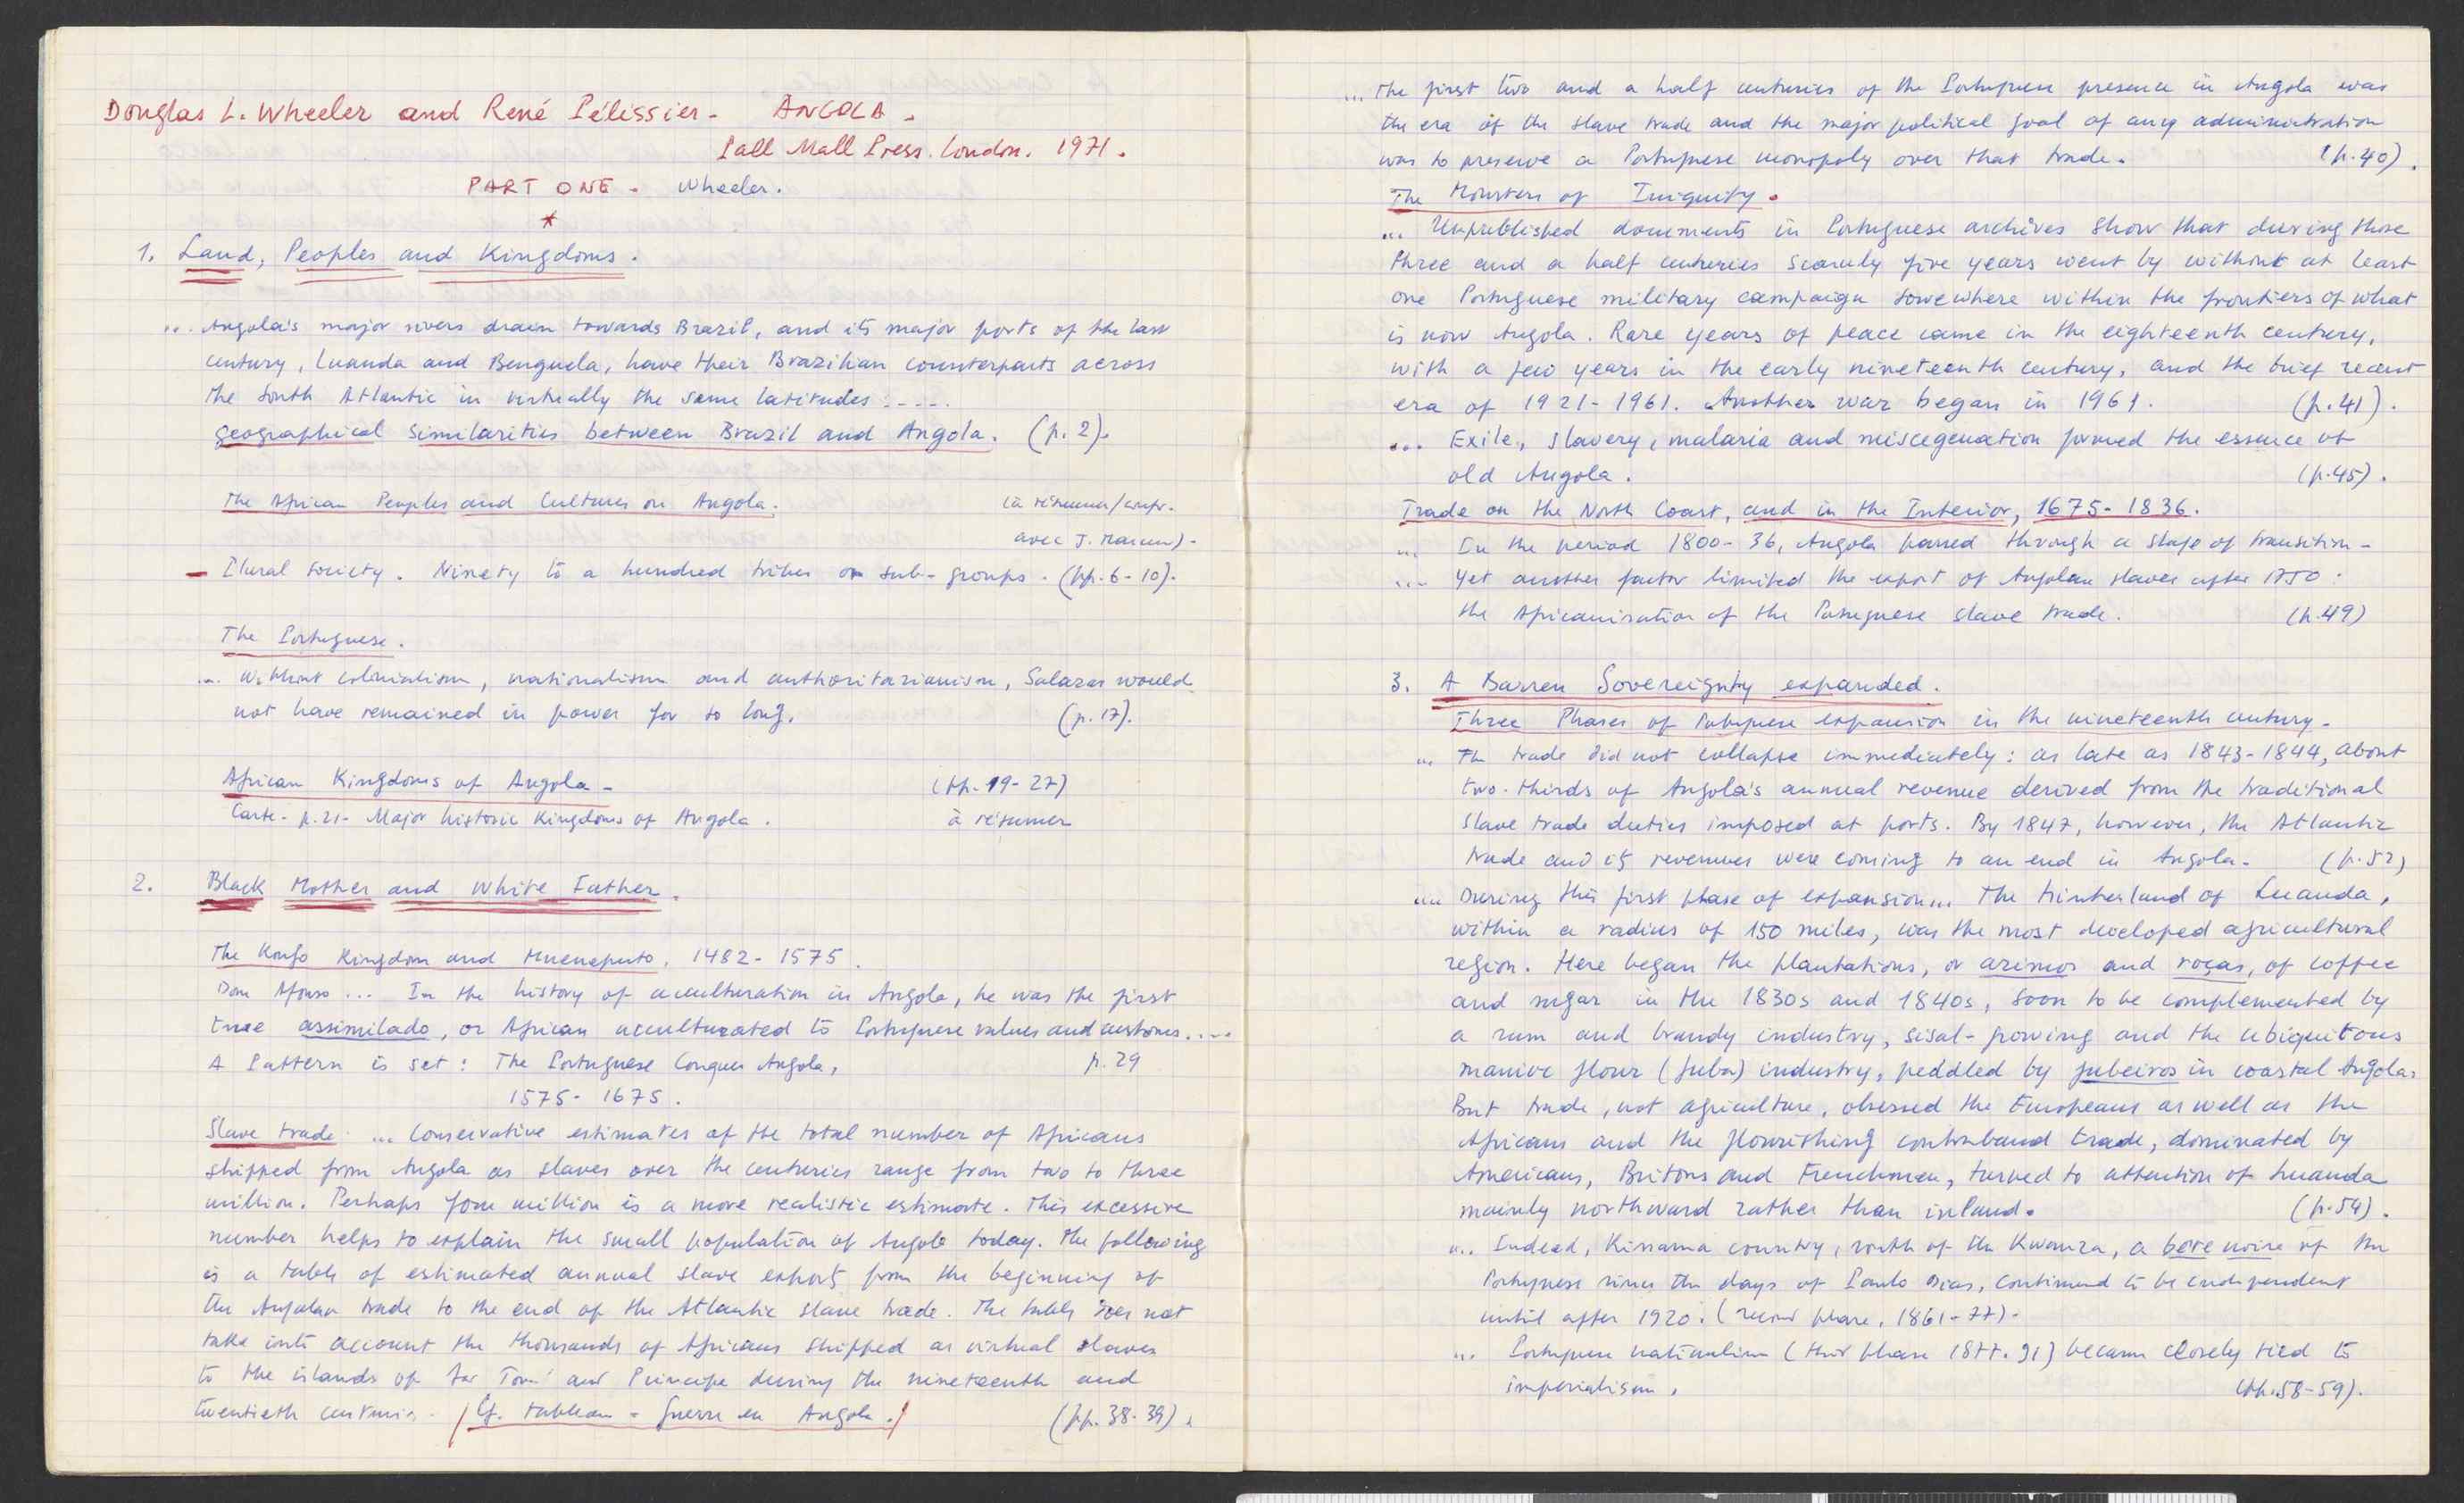 Douglas L. Wheeler and René Pélissier - ANGOLA.
Pall Mall Press. London. 1971.
PART ONE - Wheeler.
*
1. Land, Peoples and Kingdoms.
... Angola's major rivers drain towards Brazil, and its major ports of the last
century, Luanda and Benguela, have their Brazilian counterparts across
the South Atlantic in virtually the same latitudes .....
geographical similarities between Brazil and Angola. (p. 2).
The African Peoples and Cultures on Angola. (à résumer/compr.
avec J. Marcum) -
- Plural society. Ninety to a hundred tribes or sub-groups. (pp. 6-10).
The Portuguese.
... Without colonialism, nationalism and authoritarianism, Salazar would
not have remained in power for so long. (p. 17).
African Kingdoms of Angola - (pp. 19-27)
Carte - p. 21 - Major historic Kingdoms of Angola. à résumer
2. Black Mother and White Father.
The Kongo Kingdom and Mueneputo, 1482-1575.
Dom Afonso ... In the history of acculturation in Angola, he was the first
true assimilado, or African acculturated to Portuguese values and customs....
A Pattern is set: The Portuguese Conquer Angola, p. 29
1575-1675.
Slave trade. ... Conservative estimates of the total number of Africans
shipped from Angola as slaves over the centuries range from two to three
million. Perhaps four million is a more realistic estimate. This excessive
number helps to explain the small population of Angola today. The following
is a table of estimated annual slave exports from the beginning of
the Angolan trade to the end of the Atlantic slave trade. The table does not
take into account the thousands of Africans shipped as virtual slaves
to the islands of São Tomé and Principe during the nineteenth and
twentieth centuries - /Cf. tableau - Guerre en Angola./ (pp. 38-39).
... The first two and a half centuries of the Portuguese presence in Angola was
the era of the slave trade and the major political goal of any administration
was to preserve a Portuguese monopoly over that trade. (p. 40).
The Monsters of Iniquity.
... Unpublished documents in Portuguese archives show that during those
three and a half centuries scarcely five years went by without at least
one Portuguese military campaign somewhere within the frontiers of what
is now Angola. Rare years of peace came in the eighteenth century,
with a few years in the early nineteenth century, and the brief recent
era of 1921-1961. Another war began in 1961. (p. 41).
... Exile, slavery, malaria and miscegenation formed the essence of
old Angola. (p. 45).
Trade on the North Coast, and in the Interior, 1675-1836.
... In the period 1800-36, Angola passed through a stage of transition -
... Yet another factor limited the export of Angolan slaves after 1750:
the Africanisation of the Portuguese slave trade. (p. 49)
3. A Barren Sovereignty expanded.
Three Phases of Portuguese expansion in the nineteenth century -
... The trade did not collapse immediately: as late as 1843-1844, about
two-thirds of Angola's annual revenue derived from the traditional
slave trade duties imposed at ports. By 1847, however, the Atlantic
trade and its revenues were coming to an end in Angola. (p. 52)
... During this first phase of expansion... The hinterland of Luanda,
within a radius of 150 miles, was the most developed agricultural
region. Here began the plantations, or arimos and roças, of coffee
and sugar in the 1830s and 1840s, soon to be complemented by
a rum and brandy industry, sisal-growing and the ubiquitous
manioc flour (fuba) industry, peddled by fubeiros in coastal Angola.
But trade, not agriculture, obsessed the Europeans as well as the
Africans and the flourishing contraband trade, dominated by
Americans, Britons and Frenchmen, turned to attention of Luanda
mainly northward rather than inland. (p. 54).
... Indeed, Kissama country, south of the Kwanza, a bete noire of the
Portuguese since the days of Paulo Dias, continued to be independent
until after 1920. (second phase, 1861-77).
... Portuguese nationalism (third phase 1877-91) became closely tied to
imperialism. (pp. 58-59).